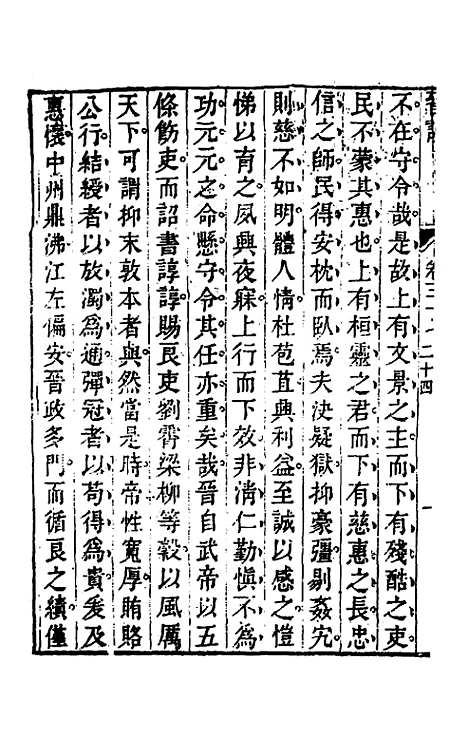 不在守令哉是故上有文景之主而下有殘酷之吏
民不蒙其惠也上有桓靈之君而下有慈惠之長忠
信之師民得安枕而臥焉夫決疑獄抑豪彊剔姦宄
則慈不如明體人情杜苞苴興利益至誠以感之愷
悌以育之夙興夜寐上行而下效非清仁勤慎不爲
功元元之命懸守令其任亦重矣哉晉自武帝以五
條飭吏而詔書諄諄賜良吏劉霄梁柳等穀以風厲
天下可謂抑末敦本者與然當是時帝性寬厚賄賂
公行結綬者以放濁爲通彈冠者以苟得爲貴爰及
惠懷中州鼎沸江左偏安晉政多門而循良之績僅
二十四